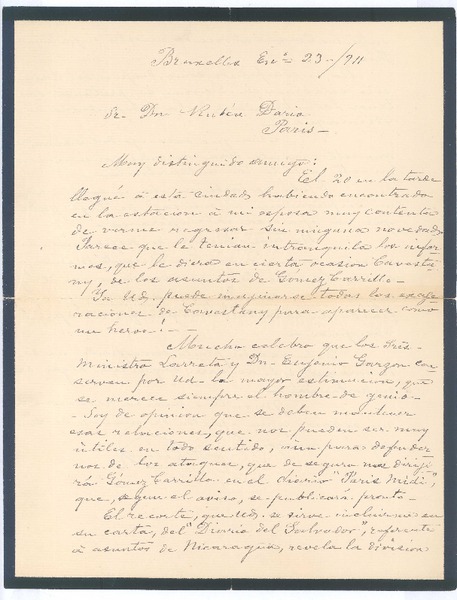 Bruxelles En.º 23../911
Sr. Dn. Rubén Dario.
Paris_
Muy distinguido amigo:
El 20 en la tarde
llegué á esta ciudad habiendo encontrado
en la estacion á mi esposa muy contenta
de verme regresar sin ninguna novedad.
Parece que le tenian intranquila los infor-
mes, que le diera en cierta ocasion
y de los asuntos de Gómez Carrillo_
Ya Ud. puede imaginarse todas las exage-
raciones de para aparecer como
un heroe!_
Mucho celebro que los Srés.
Ministro Larreta y Dn. Eugenio Garzon con
serven por Ud. la mayor estimacion, que
se merece siempre el hombre de genio_
_Soy de opinion que se deben mantener
esas relaciones, que nos pueden ser muy
útiles en todo sentido, aún para defender
nos de los ataques, que de seguro nos dirigi-
rá Gómez Carrillo en el diario "Paris Midi",
que, segun el aviso, se publicará pronto_
El recorte, que Ud. se sirve incluirme en
su carta, del "Diario del Salvador", referente
á asuntos de Nicaragua, revela la division